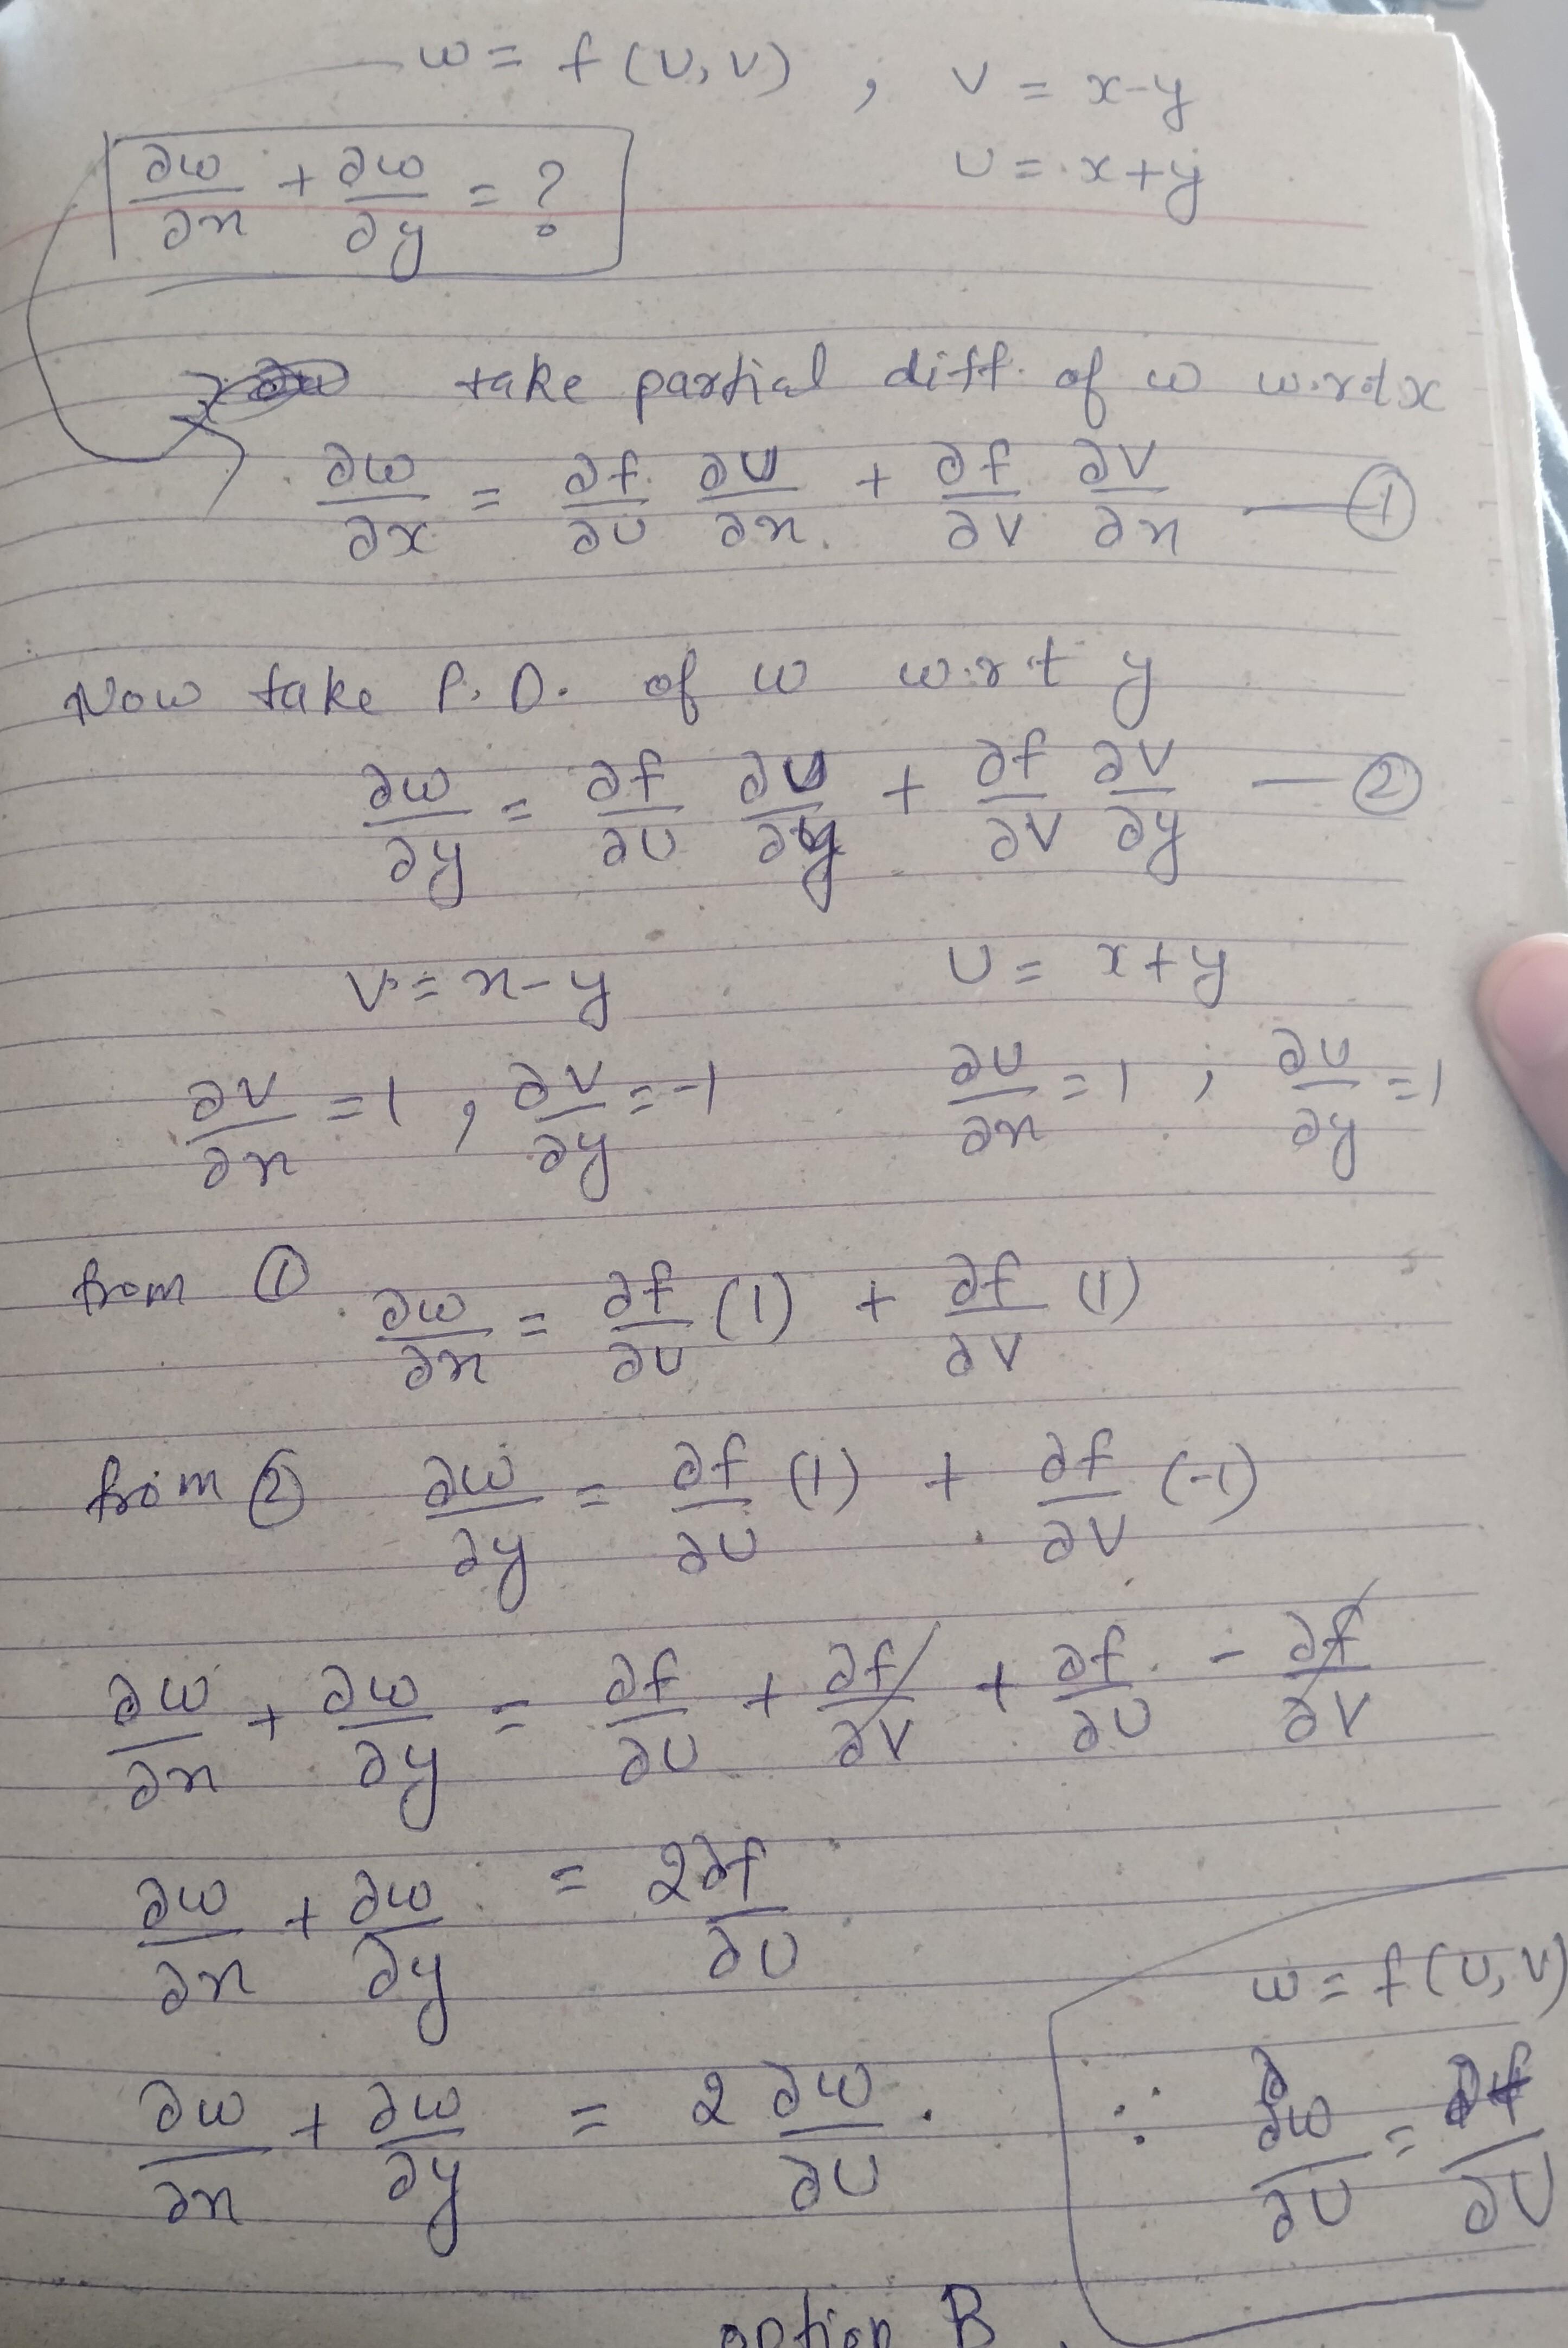 w = f(u,v) , v = x-y
∂w/∂x + ∂w/∂y = ? u = x+y
take partial diff. of w w.r.t x
∂w/∂x = ∂f/∂u ∂u/∂x + ∂f/∂v ∂v/∂x — ①
Now take P.D. of w w.r.t y
∂w/∂y = ∂f/∂u ∂u/∂y + ∂f/∂v ∂v/∂y — ②
v = x-y u = x+y
∂v/∂x = 1 , ∂v/∂y = -1 ∂u/∂x = 1 , ∂u/∂y = 1
from ① ∂w/∂x = ∂f/∂u (1) + ∂f/∂v (1)
from ② ∂w/∂y = ∂f/∂u (1) + ∂f/∂v (-1)
∂w/∂x + ∂w/∂y = ∂f/∂u + ∂f/∂v + ∂f/∂u - ∂f/∂v
∂w/∂x + ∂w/∂y = 2∂f/∂u
w = f(u,v)
∂w/∂x + ∂w/∂y = 2 ∂w/∂u . ∵ ∂w/∂u = ∂f/∂u
option B